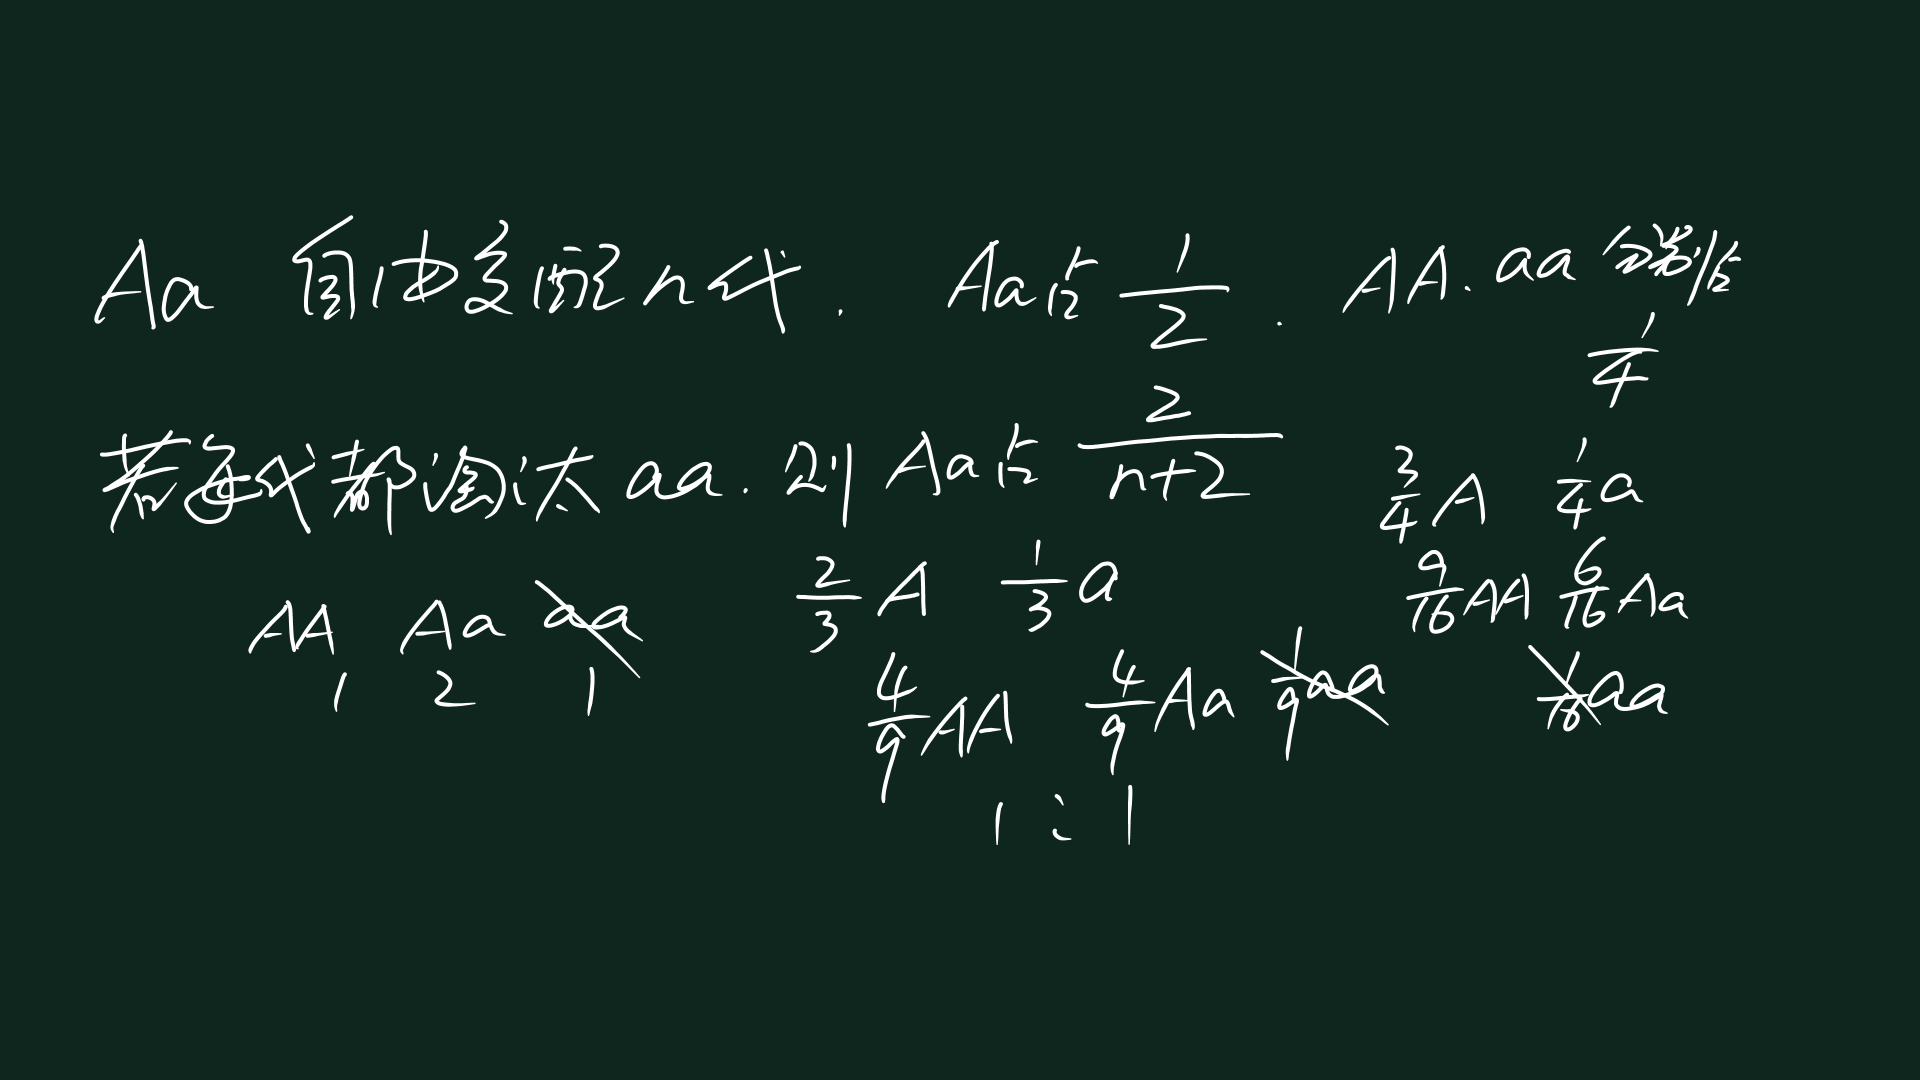 Aa 自由交配n代. Aa占 1/2 . AA. aa 分别占 1/4
若每代都淘汰aa. 则 Aa占 2/(n+2)
3/4 A 1/4 a
AA Aa aa
1 2 1
2/3 A 1/3 a
4/9 AA 4/9 Aa 1/9 aa
1 : 1
9/16 AA 6/16 Aa
1/16 aa